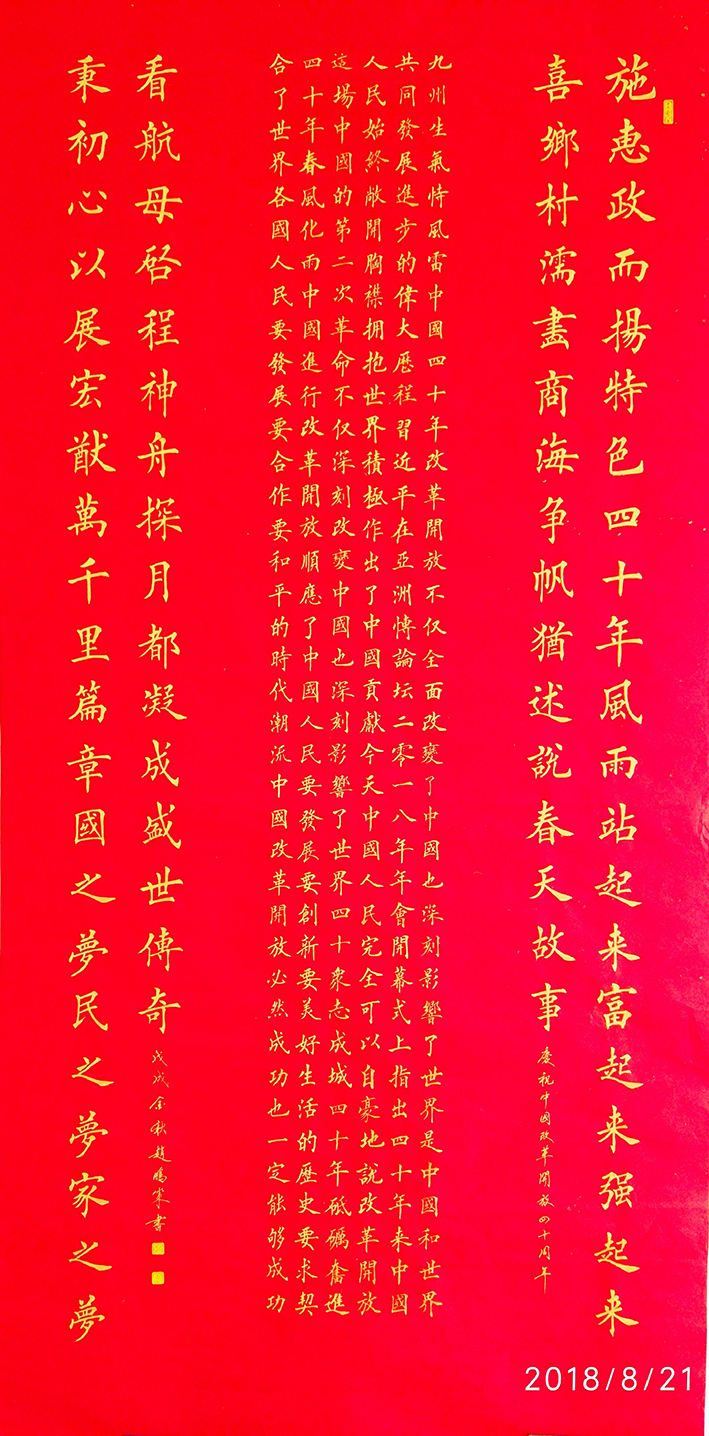 施惠政而揚特色四十年風雨站起来富起来强起来
喜鄉村濡畫商海争帆猶述説春天故事
慶祝中國改革開放四十周年
九州生氣恃風雷中國四十年改革開放不仅全面改變了中國也深刻影響了世界是中國和世界
共同發展進步的偉大歷程習近平在亞洲博論坛二零一八年年會開幕式上指出四十年来中國
人民始終敞開胸襟拥抱世界積極作出了中國貢獻今天中國人民完全可以自豪地說改革開放
這場中國的第二次革命不仅深刻改變中國也深刻影響了世界四十衆志成城四十年砥礪奮進
四十年春風化雨中國進行改革開放順應了中國人民要發展要創新要美好生活的歷史要求契
合了世界各國人民要發展要合作要和平的時代潮流中國改革開放必然成功也一定能够成功
看航母啓程神舟探月都凝成盛世傳奇
戊戌金秋趙鵬 書
秉初心以展宏猷萬千里篇章國之夢民之夢家之夢
2018/8/21